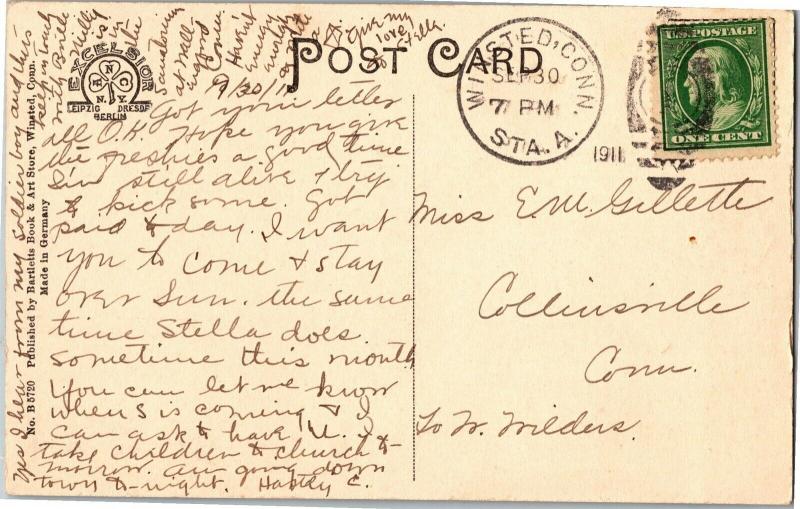 POST CARD
EXCELSIOR
E N C N.Y.
LEIPZIG DRESDEN
BERLIN
WINSTED, CONN.
SEP 30
7 PM
STA. A.
1911
U.S. POSTAGE
ONE CENT
No. B 5720 Published by Bartletts Book & Art Store, Winsted, Conn.
Made in Germany
Conn.
9/30/11
Got your letter
all O.K. Hope you give
the freshies a good time
I'm still alive & try
to kick some. Got
paid to day. I want
you to come & stay
over Sun. the same
time Stella does.
sometime this month
You can let me know
when S is coming & I
can ask to have U. I
take children to church to-
morrow. Am going down
town to-night. Hastily C.
Yes I hear from my soldier boy and this
give my
love to
Stella.
Miss E. M. Gillette
Collinsville
Conn.
To W. Wilders.